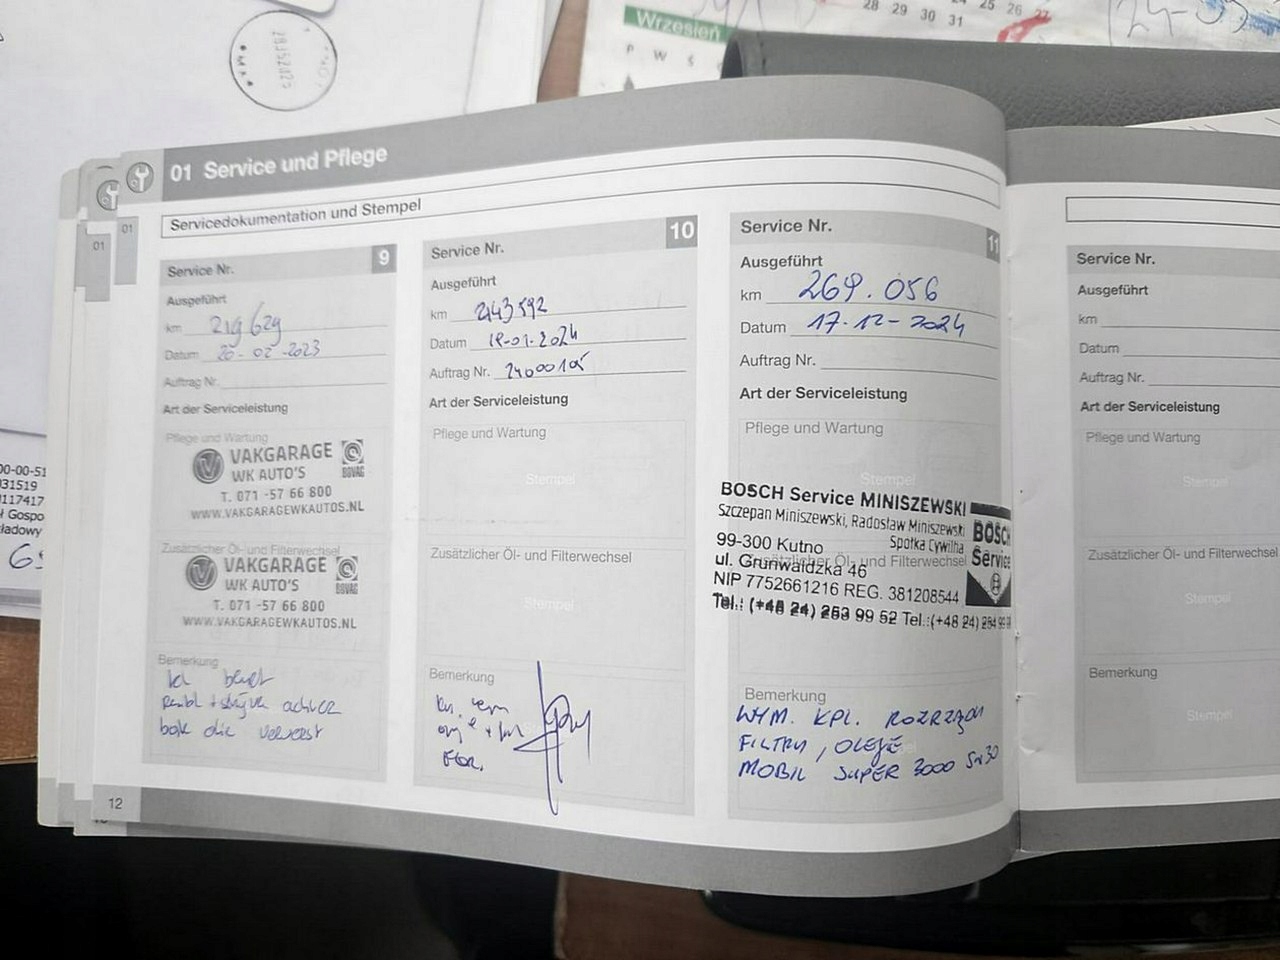 28 29 30 31
25 26 27
Wrzesień
P W Ś
01 Service und Pflege
01
01
Servicedokumentation und Stempel
Service Nr. 9
Ausgeführt
km 219629
Datum 20-02-2023
Auftrag Nr.
Art der Serviceleistung
Pflege und Wartung
VAKGARAGE
WK AUTO'S
BOVAG
T. 071 -57 66 800
WWW.VAKGARAGEWKAUTOS.NL
Zusätzlicher Öl- und Filterwechsel
VAKGARAGE
WK AUTO'S
BOVAG
T. 071 -57 66 800
WWW.VAKGARAGEWKAUTOS.NL
Bemerkung
12
Service Nr. 10
Ausgeführt
km 243592
Datum 2024
Auftrag Nr.
Art der Serviceleistung
Pflege und Wartung
Stempel
Zusätzlicher Öl- und Filterwechsel
Stempel
Bemerkung
Service Nr. 11
Ausgeführt
km 269.056
Datum 17-12-2024
Auftrag Nr.
Art der Serviceleistung
Pflege und Wartung
Stempel
BOSCH Service MINISZEWSKI
Szczepan Miniszewski, Radosław Miniszewski
Spółka Cywilna
BOSCH
Service
99-300 Kutno
Zusätzlicher Öl- und Filterwechsel
ul. Grunwaldzka 46
NIP 7752661216 REG. 381208544
Tel.: (+48 24) 253 99 52 Tel.:(+48 24) 254
Bemerkung
WYM. KPL. ROZRZĄDU
FILTRY, OLEJE
MOBIL SUPER 3000 5W30
Service Nr.
Ausgeführt
km
Datum
Auftrag Nr.
Art der Serviceleistung
Pflege und Wartung
Stempel
Zusätzlicher Öl- und Filterwechsel
Stempel
Bemerkung
Stempel
00-00-51
031519
117417